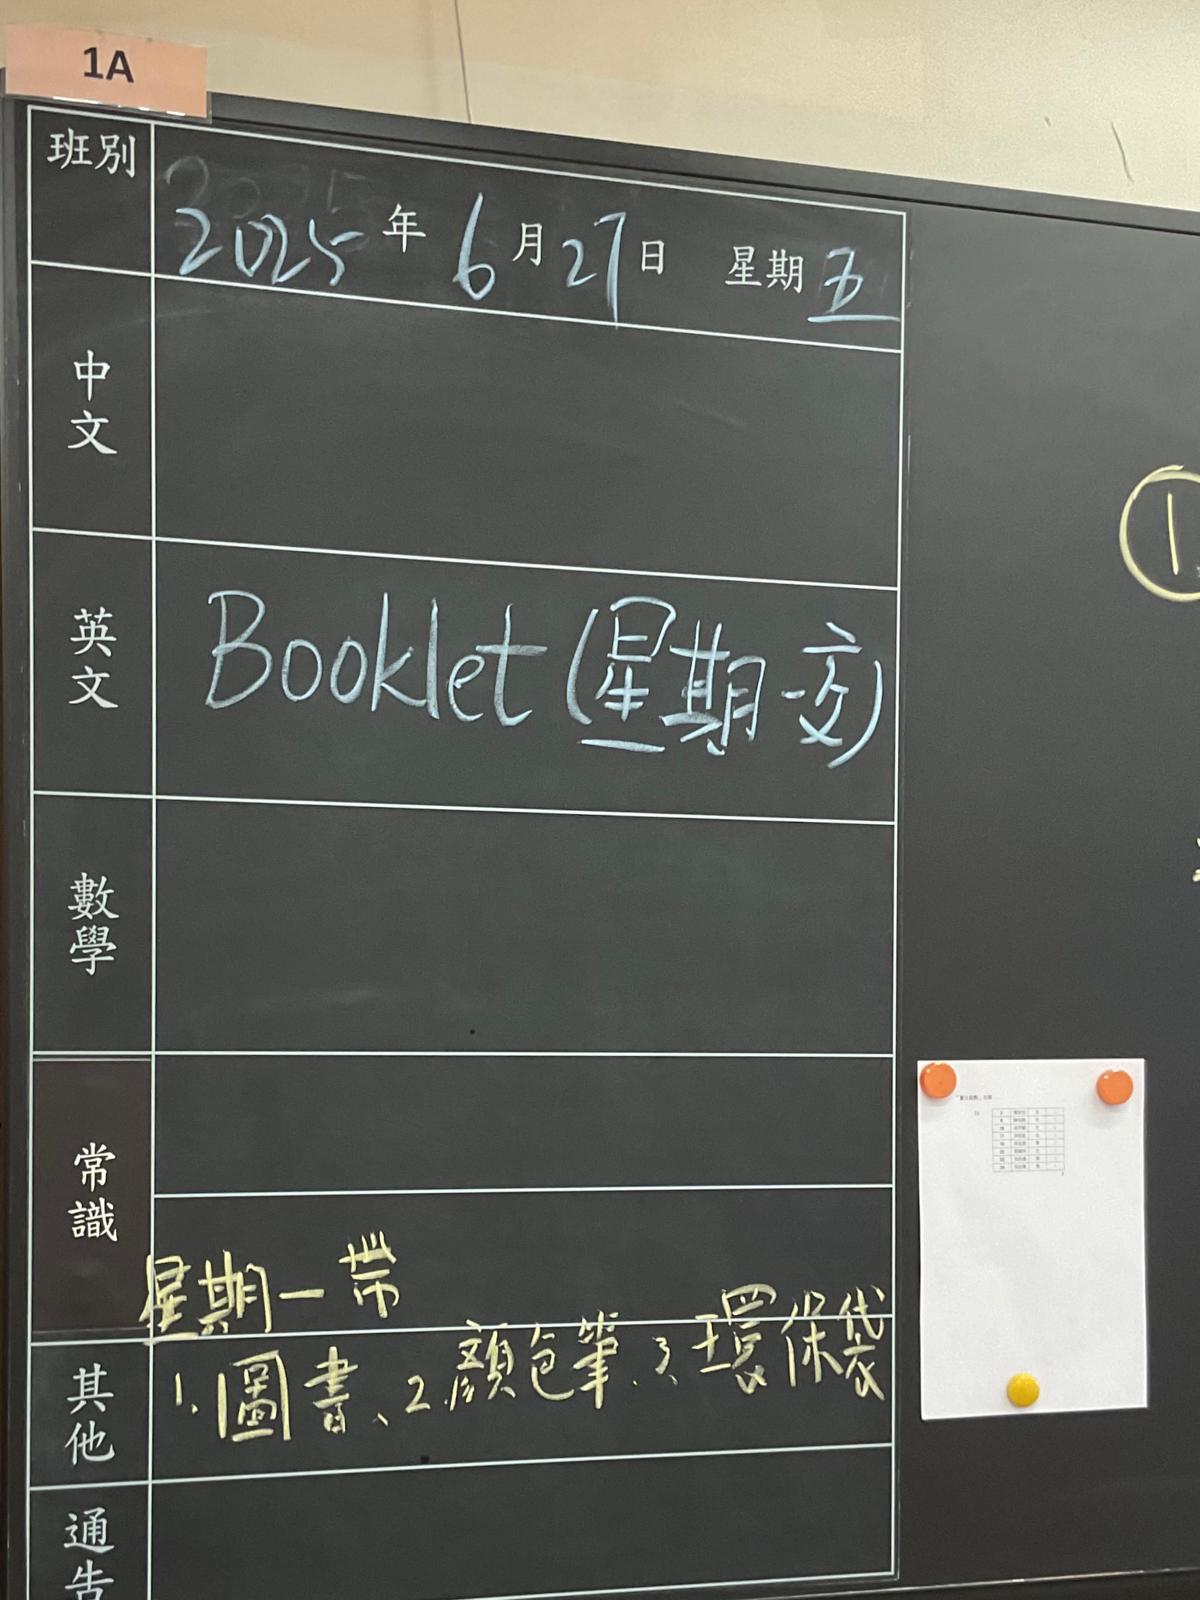 1A
班別
2025年6月27日 星期五
中文
英文
Booklet (星期一交)
數學
常識
星期一帶
其他
1.圖書、2.顏色筆、3、環保袋
通告
1